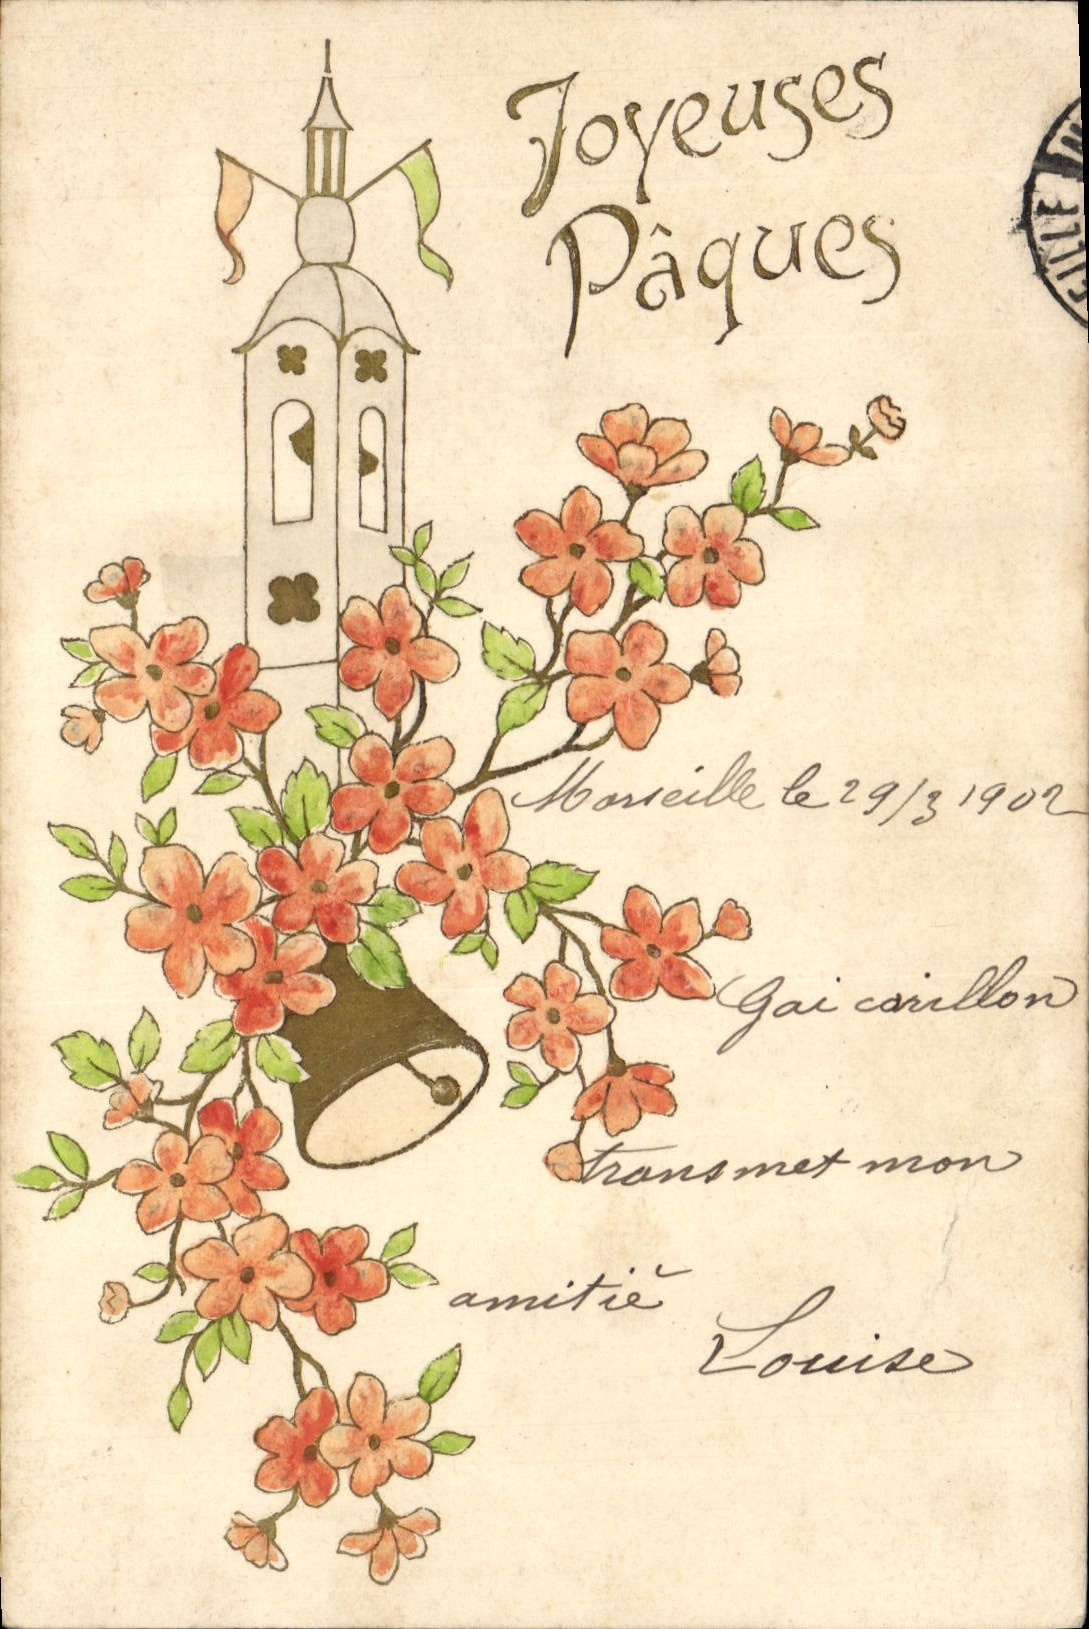 Joyeuses
Pâques
CILLE
Marseille le 29/3 1902
Gai carillon
transmet mon
amitié
Louise